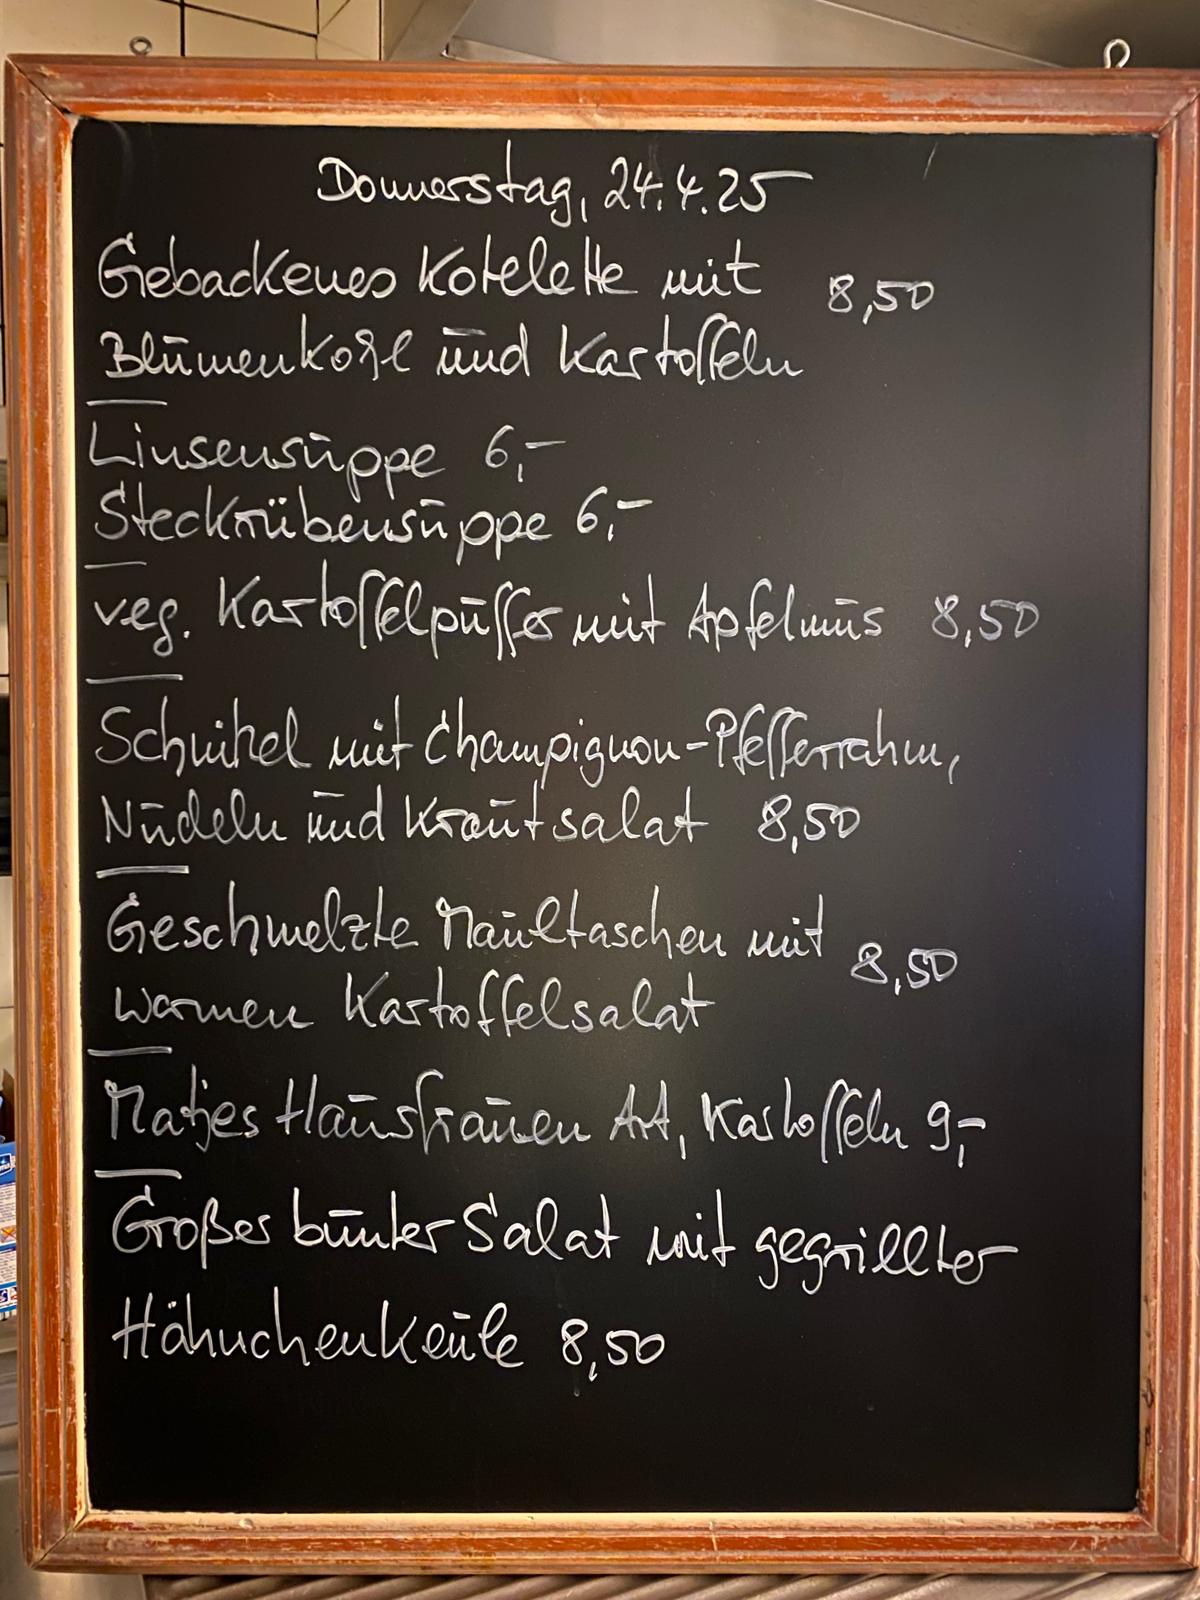 Donnerstag, 24.4.25
Gebackenes Kotelette mit 8,50
Blumenkohl und Kartoffeln
Linsensuppe 6,-
Steckrübensuppe 6,-
veg. Kartoffelpuffer mit Apfelmus 8,50
Schnitzel mit Champignon-Pfefferrahm,
Nudeln und Krautsalat 8,50
Geschmelzte Maultaschen mit 8,50
warmen Kartoffelsalat
Matjes Hausfrauen Art, Kartoffeln 9,-
Großer bunter Salat mit gegrillter
Hähnchenkeule 8,50